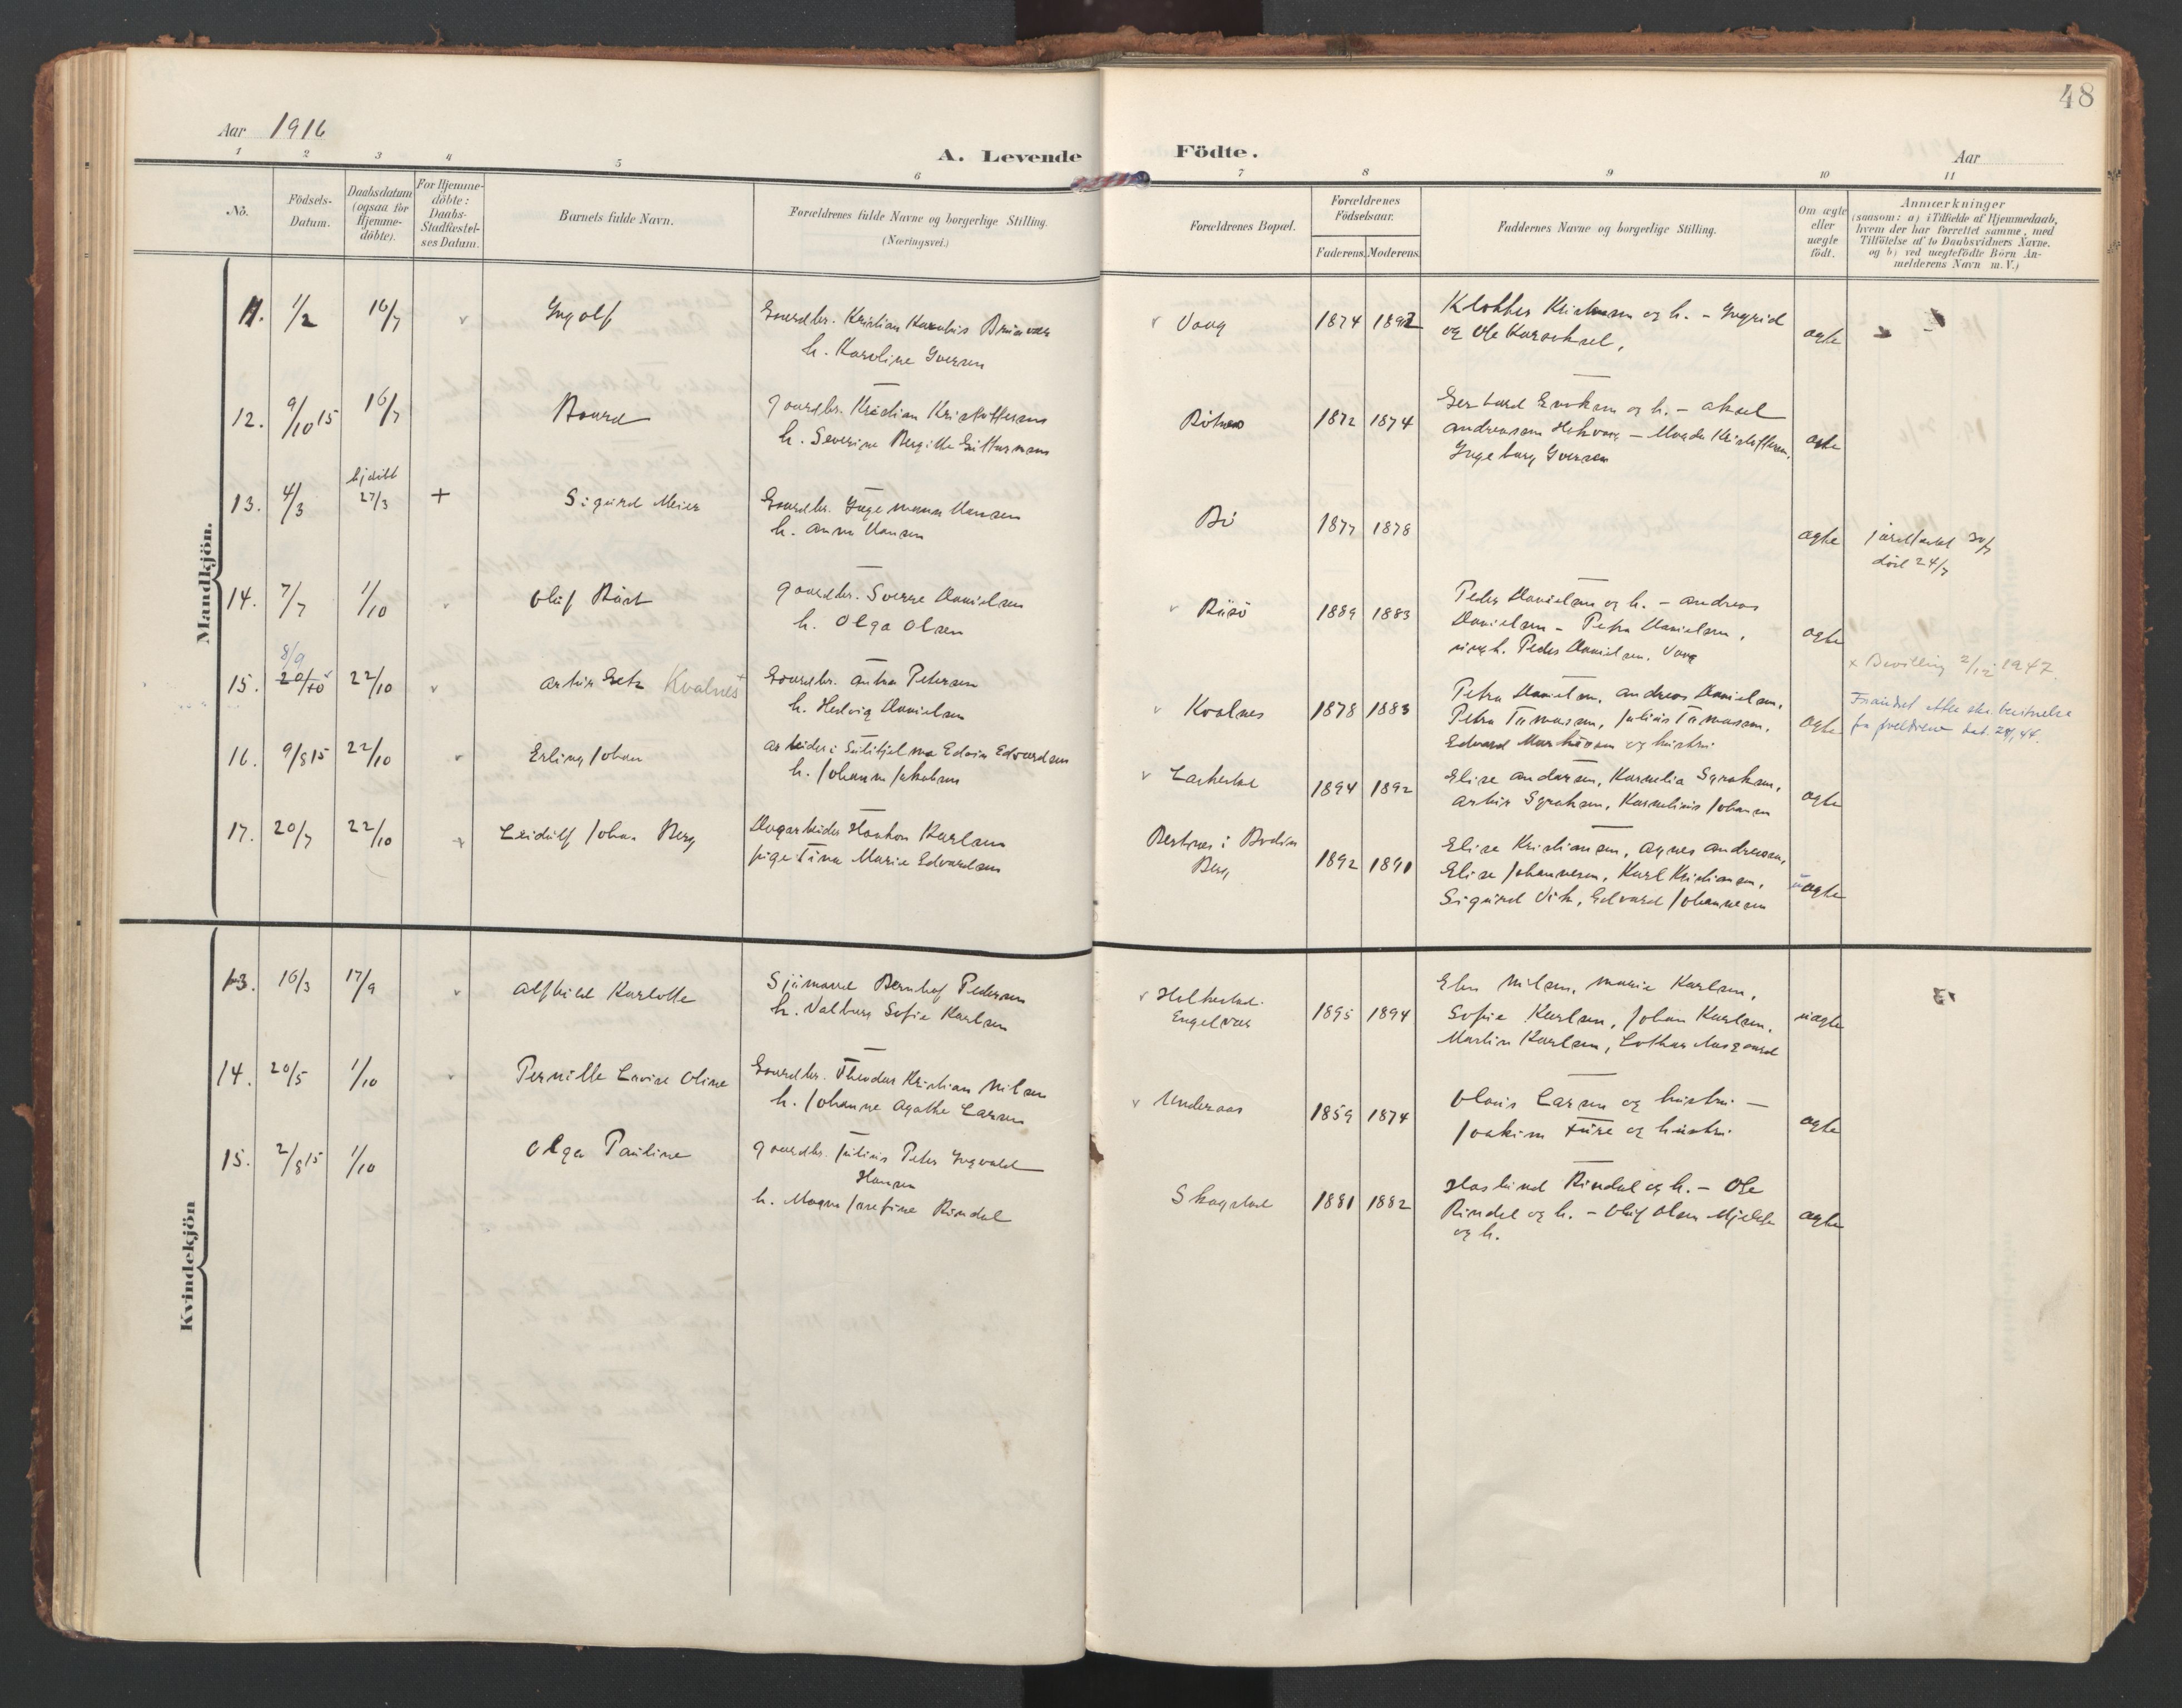 48
Aar 1916
A. Levende Födte.
Aar
1 2 3 4 5 6 7 8 9 10 11
No.
Födsels-
Datum.
Daabsdatum
(ogsaa for
Hjemme-
döbte).
For Hjemme-
döbte:
Daabs-
Stadfæstel-
ses Datum.
Barnets fulde Navn.
Forældrenes fulde Navne og borgerlige Stilling.
(Næringsvei.)
Forældrenes Bopæl.
Forældrenes
Födselsaar.
Faderens. Moderens.
Faddernes Navne og borgerlige Stilling.
Om ægte
eller
uægte
födt.
Anmærkninger
(saasom: a) i Tilfælde af Hjemmedaab,
hvem der har forrettet samme, med
Tilföielse af to Daabsvidners Navne.
og b) ved uægtefödte Börn An-
melderens Navn m. V.)
Mandkjön.
11. 1/2 16/7 Ingolf
Gaardbr. Kristian
h. Karoline Iversen
Vaag 1874 1892
Klokker og h. – Ingrid
og Ole
ægte
12. 9/10 15 16/7 Baard
Gaardbr. Kristian Kristoffersen
h. Severine Bergitte
1872 1874
og h. – Aksel
Andreassen – Magda Kristoffersen,
Ingeborg Iversen
ægte
13. 4/3 hjdöbt
27/3 + Sigurd Meier
Gaardbr. Ingemann Hansen
h. Anna Hansen
Bö 1877 1878
ægte
jordfæstet 30/7
död 24/7
14. 7/7 1/10 Oluf
Gaardbr. Sverre Danielsen
h. Olga Olsen
1889 1883
Peder Danielsen og h. – Andreas
Danielsen – Petra Danielsen,
ungk. Peder Danielsen. Vaag
ægte
8/9
15. 20/10 22/10 Artur Kvalnes +
Gaardbr. Anton Petersen
h. Hedvig Danielsen
Kvalnes 1878 1883
Petra Danielsen, Andreas Danielsen,
Petra Tomassen, Julius Tomassen,
Edvard og hustru.
ægte
x Bevilling 2/12 1947.
Forandret efter
fra
16. 9/8 15 22/10 Erling Johan
Arbeider i Sulitjelma Edvin Edvardsen
h. Johanna Jakobsen
1894 1892
Elise Andersen, Kornelia
Artur Kornelius Johansen
ægte
17. 20/7 22/10 Leidulf Johan Berg
Dagarbeider Haakon Karlsen
pige Tina Marie Edvardsen
Bertnes i Bodin
Berg
1892 1891
Elise Kristiansen, Agnes Andreassen,
Elise Johannesen, Karl Kristiansen,
Sigurd Vik, Edvard Johannesen
uægte
Kvindekjön
13. 16/3 17/9 Alfhild Karlotte
Sjömand Bernhof Pedersen
h. Valborg Sofie Karlsen
Engelvær
1895 1894
Elen Nilsen, Marie Karlsen,
Sofie Karlsen, Johan Karlsen,
Martin Karlsen, Lothar Aasgaard
uægte
14. 20/5 1/10 Pernille Lovise Oline
Gaardbr. Theodor Kristian Nilsen
h. Johanne Agathe Larsen
Underaas 1859 1874
Olaus Larsen og hustru –
Joakim Ture og hustru.
ægte
15. 2/8 15 1/10 Olga Pauline
Gaardbr. Julius Peter Ingvald
Hansen
h. Magna Josefine Rindal
Skagstad 1881 1882
Haslund Rindal og h. – Ole
Rindal og h. – Oluf Olsen Mjelde
og h.
ægte